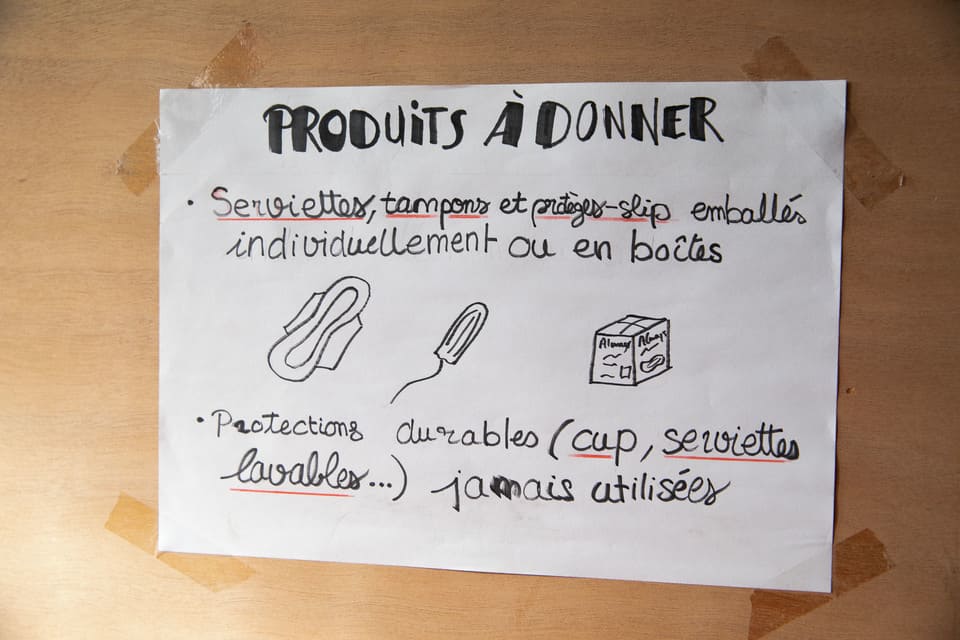 PRODUiTS À DONNER
• Serviettes, tampons et protèges-slip emballés
individuellement ou en boîtes
Always Always
• Protections durables (cup, serviettes
lavables...) jamais utilisées